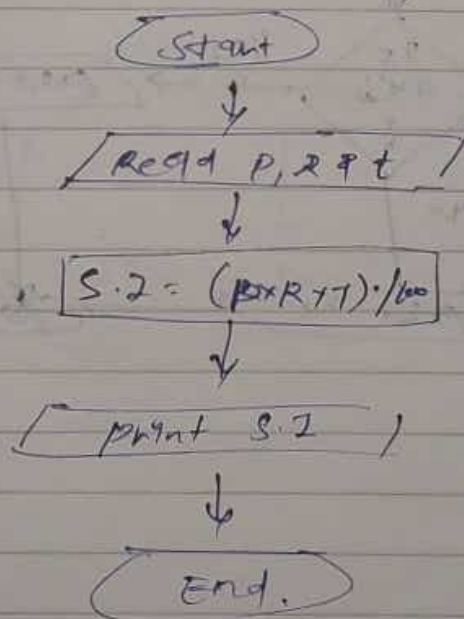 Start
Read P, R & t
S.I = (P×R×T)/100
print S.I
End.